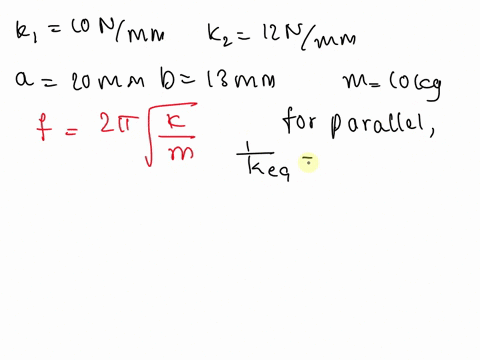 k₁ = 10 N/mm k₂ = 12 N/mm
a = 20 mm b = 13 mm m = 10 kg
f = 2π √(k/m) for parallel,
1/keq =